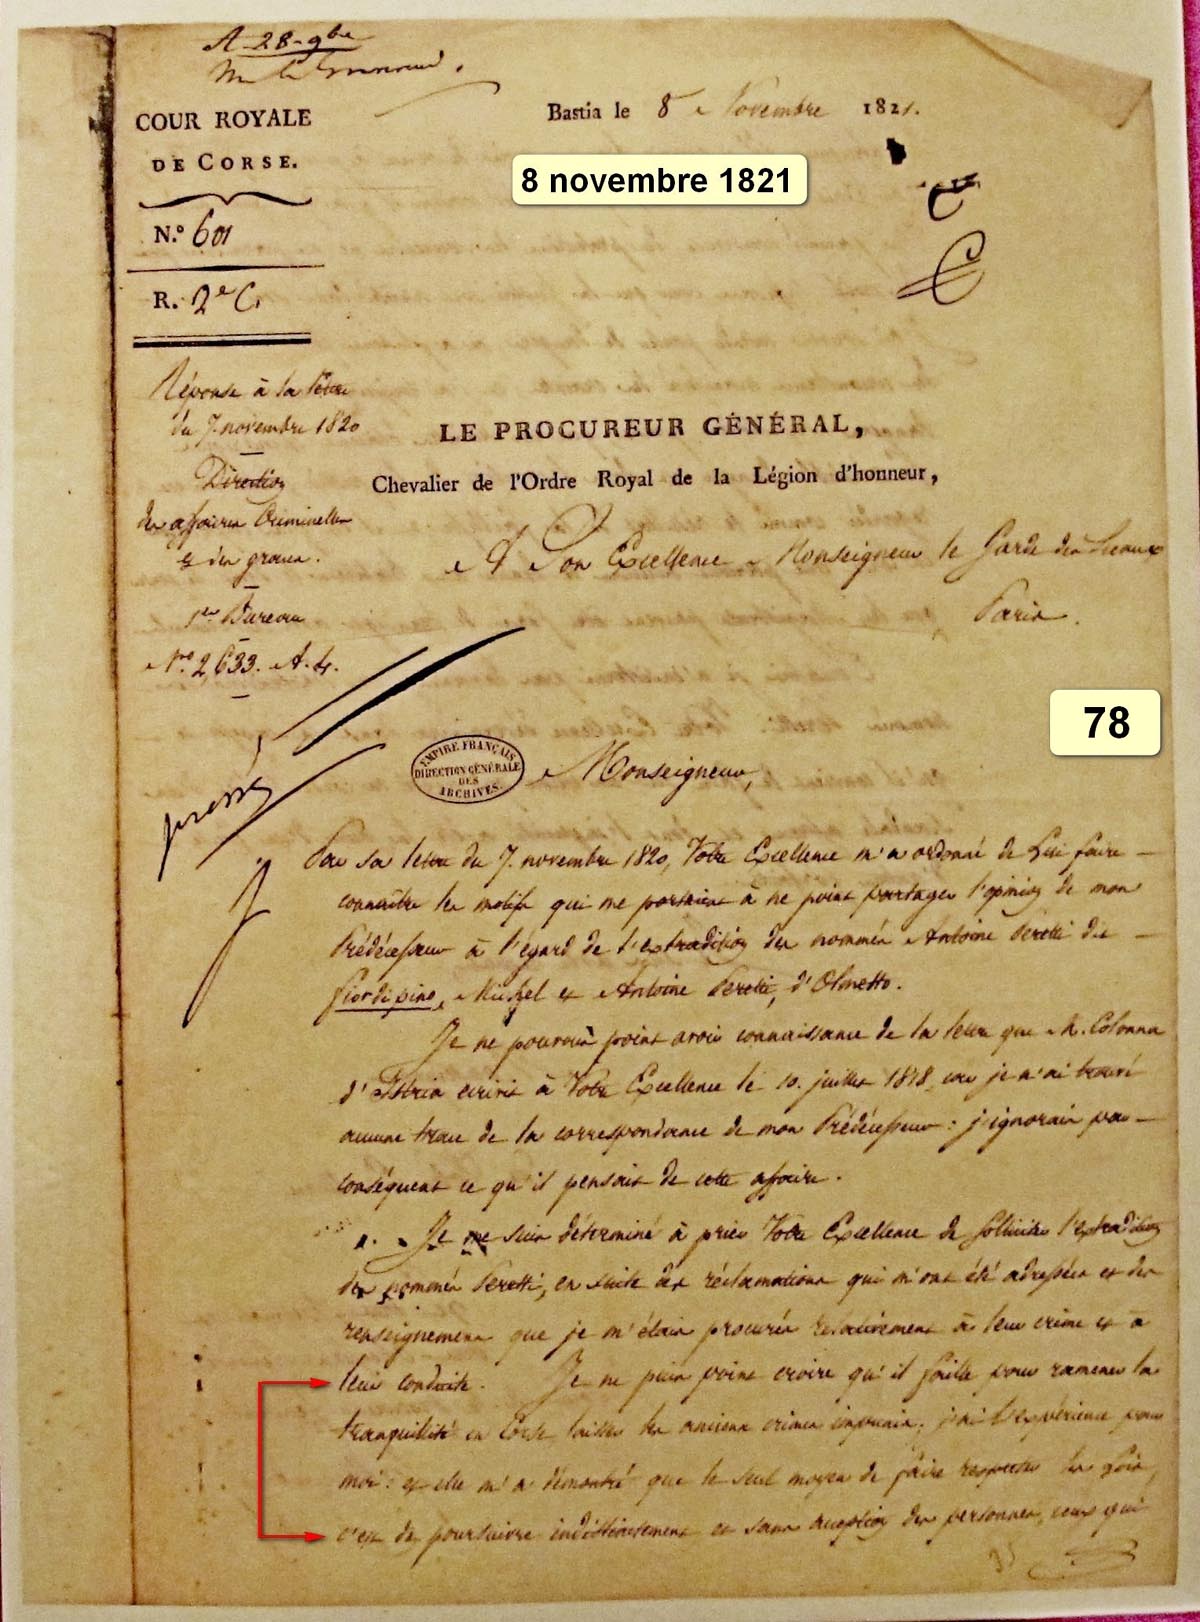 A 28 9bre
COUR ROYALE
DE CORSE.
N.° 601
R. 2e C.
Bastia le 8 Novembre 1821.
8 novembre 1821
Réponse à la lettre
du 7. novembre 1820
Direction
des affaires Criminelles
& des graces.
1er Bureau
Nro 2,633. A. 4.
pressé
LE PROCUREUR GÉNÉRAL,
Chevalier de l'Ordre Royal de la Légion d'honneur,
A Son Excellence Monseigneur le Garde des Sceaux
Paris.
78
EMPIRE FRANÇAIS
DIRECTION GÉNÉRALE
DES
ARCHIVES.
Monseigneur,
Par sa lettre du 7. novembre 1820, Votre Excellence m'a ordonné de Lui faire
connaître les motifs qui me portaient à ne point partager l'opinion de mon
Prédécesseur à l'égard de l'extradition des nommés Antoine Peretti die
fiordispino, Michel et Antoine Peretti, d'Olmetto.
Je ne pouvais point avoir connaissance de la lettre que M. Colonna
d'Istria écrivit à Votre Excellence le 10. juillet 1818, car je n'ai trouvé
aucune trace de la correspondance de mon Prédécesseur : j'ignorais par
conséquent ce qu'il pensait de cette affaire.
Je me suis déterminé à prier Votre Excellence de solliciter l'extradition
des nommés Peretti, en suite des réclamations qui m'ont été adressées et des
renseignemens que je m'étais procurés relativement à leur crime et à
leur conduite. Je ne puis point croire qu'il faille pour ramener la
tranquillité en Corse laisser les anciens crimes impunis; j'ai l'expérience pour
moi : et elle m'a démontré que le seul moyen de faire respecter les lois,
c'est de poursuivre indistinctement et sans acception des personnes, ceux qui